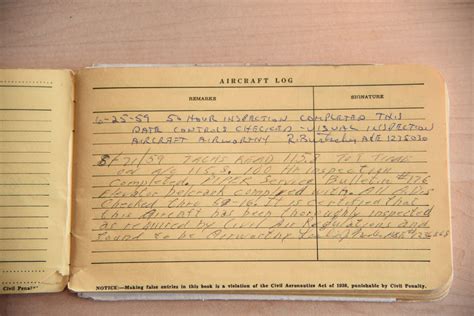 AIRCRAFT LOG
REMARKS
SIGNATURE
6-25-59 50 HOUR INSPECTION COMPLETED THIS
DATE CONTROLS CHECKED - VISUAL INSPECTION
AIRCRAFT AIRWORTHY R. A&E
59 TACH READ 115.8 TIME
on a/c 115.8. 100 Hr inspection
Completed. Service Bulletin #176
Elevator Complied with. All
Checked thru 59-16. It is certified that
this Aircraft has been thoroughly inspected
as required by Civil Air Regulations and
found to be Airworthy
NOTICE:—Making false entries in this book is a violation of the Civil Aeronautics Act of 1938, punishable by Civil Penalty.
Civil Penalty.